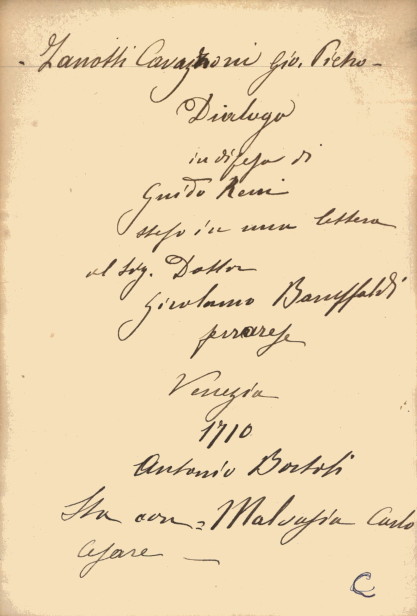 - Zanotti Cavazzoni Gio. Pietro -
Dialogo
in difesa di
Guido Reni
steso in una lettera
al Sig. Dottor
Girolamo Baruffaldi
ferrarese
Venezia
1710
Antonio Bortoli
Sta con = Malvasia Carlo
Cesare -
C